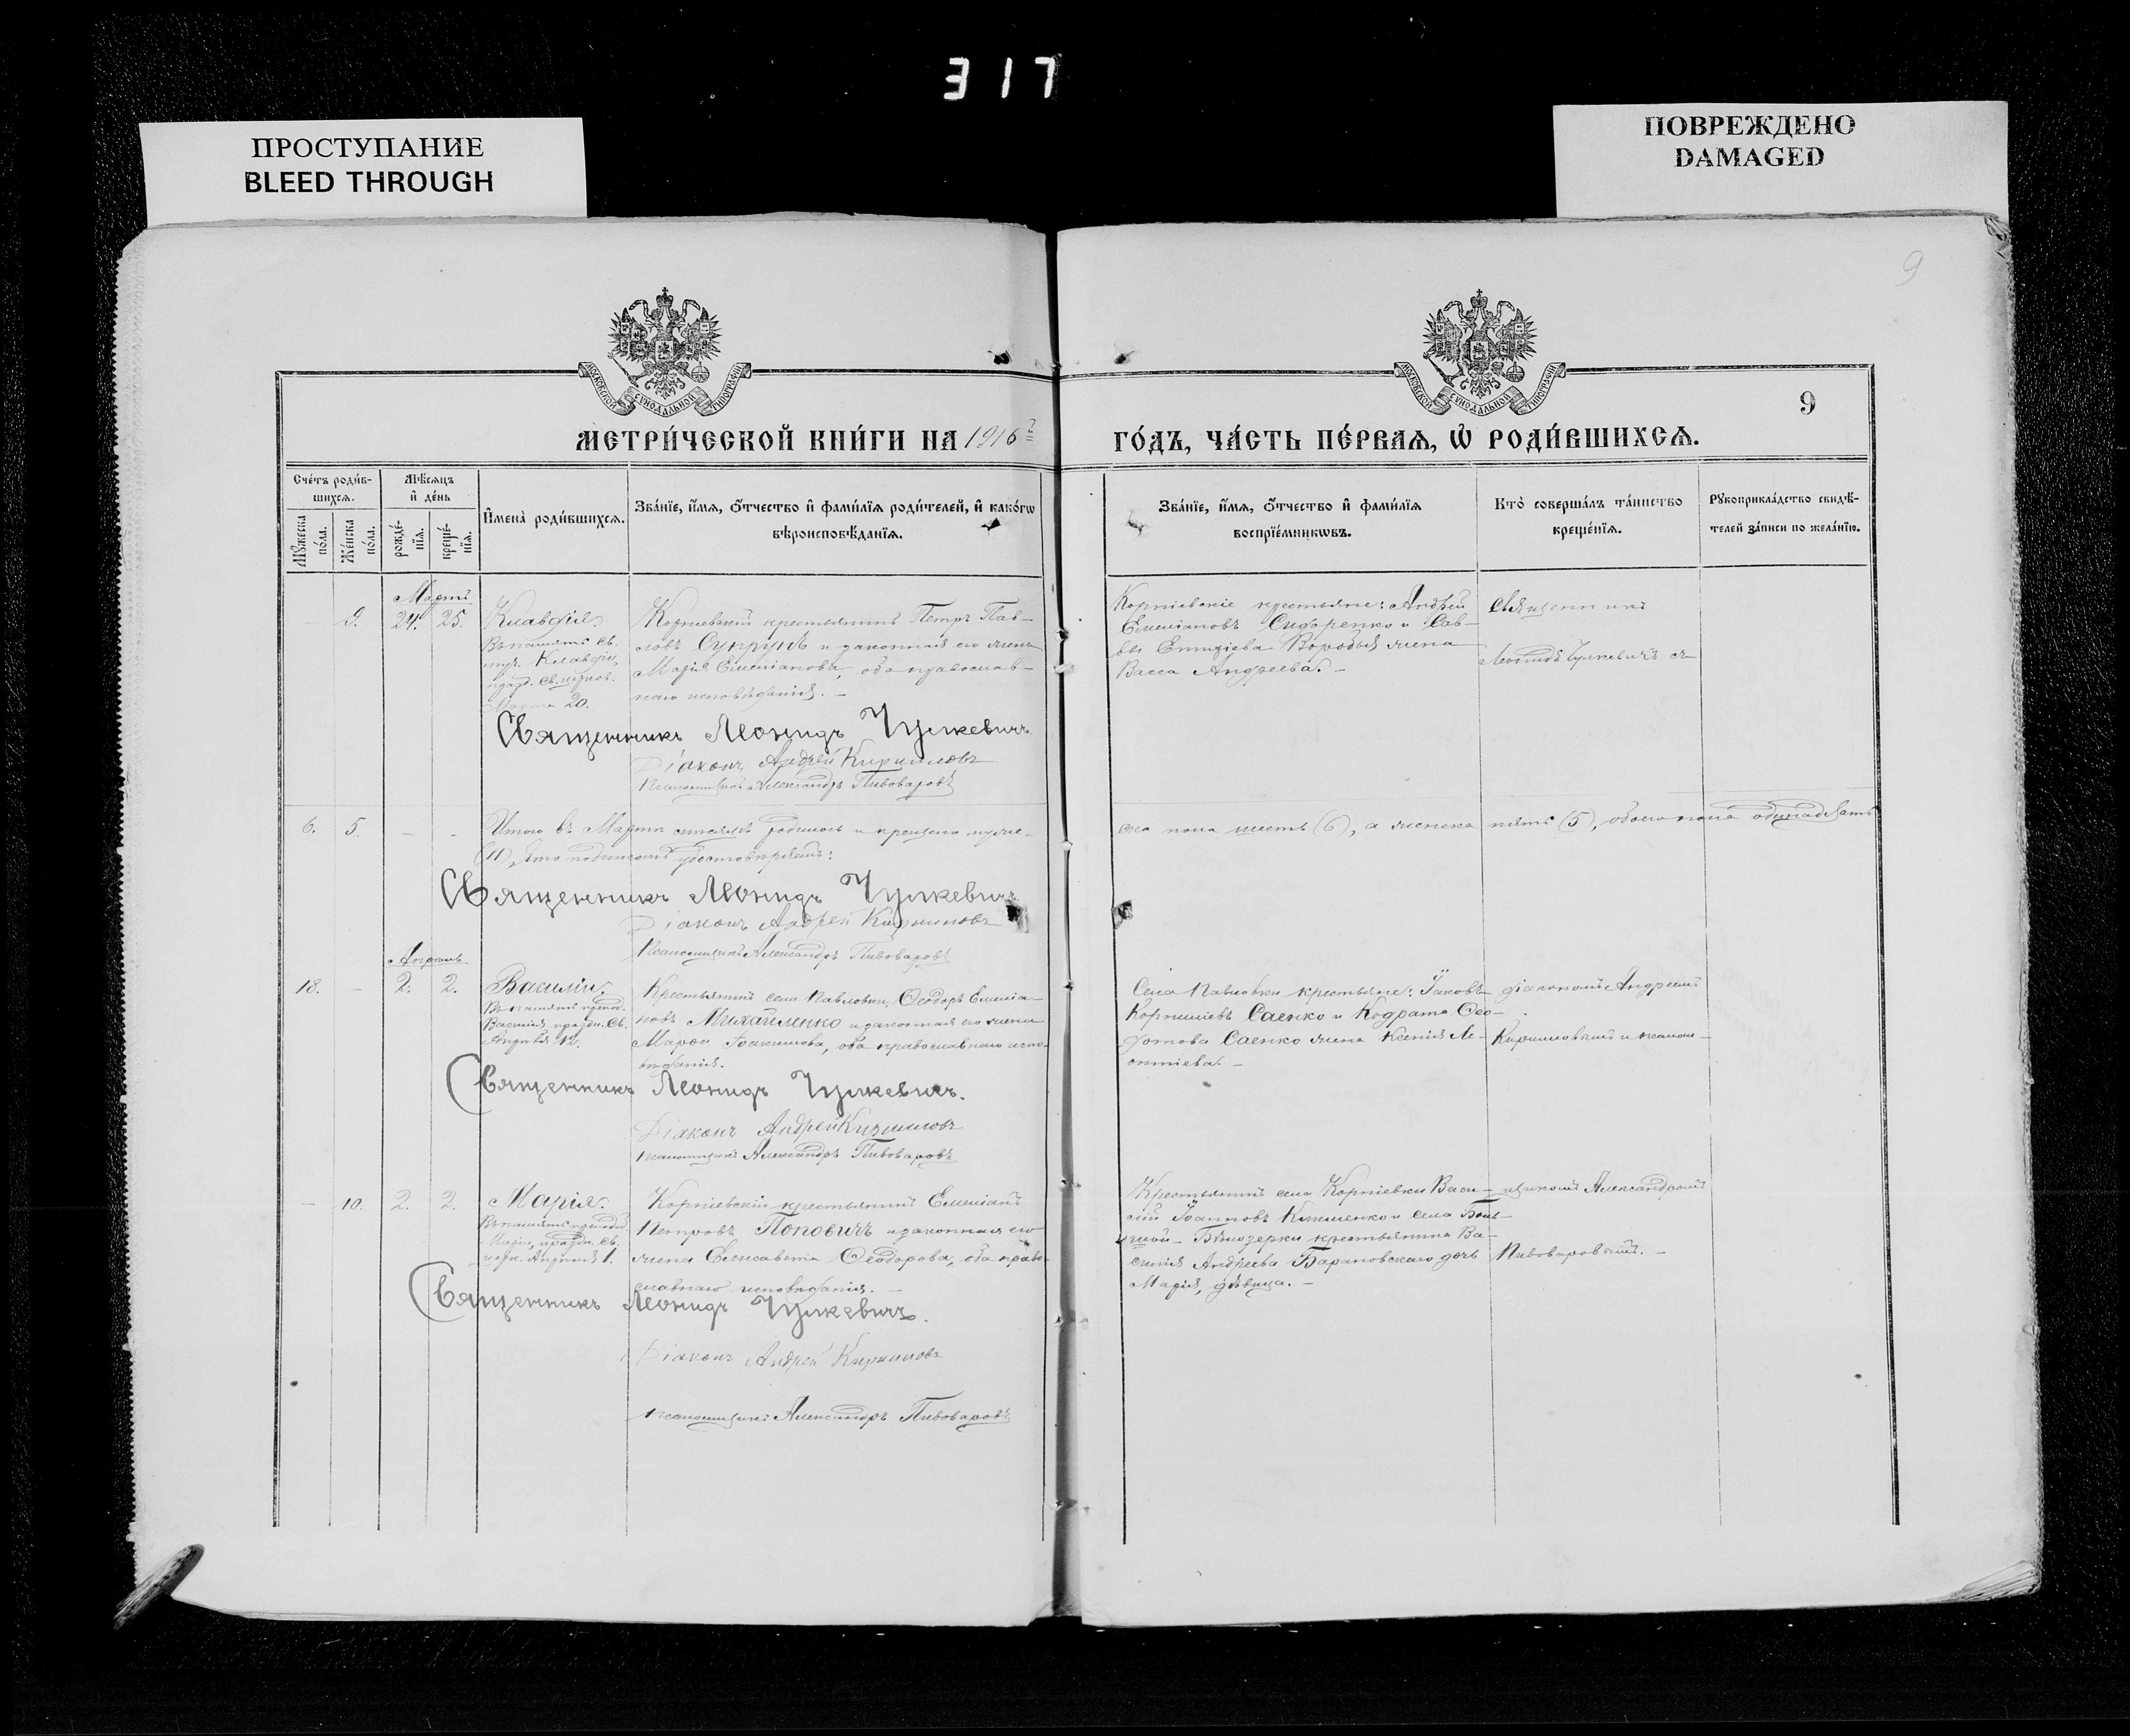 317
ПРОСТУПАНИЕ
BLEED THROUGH
ПОВРЕЖДЕНО
DAMAGED
9
МОСКОВСКОЙ СУНОДАЛЬНОЙ ТИПОГРАФІИ
МОСКОВСКОЙ СУНОДАЛЬНОЙ ТИПОГРАФІИ
9
МЕТРИ́ЧЕСКОЙ КНИ́ГИ НА 1916й
ГО́ДЪ, ЧА́СТЬ ПЕ́РВАЯ, Ѡ РОДИ́ВШИХСЯ.
Сче́тъ роди́в-
шихся.
Мѣ́сяцъ
и де́нь
Му́жеска
по́ла.
Же́нска
по́ла.
рожде́-
нїя.
креще́-
нїя.
Имена̀ роди́вшихся.
Зва́нїе, и́мя, о́тчество и фами́лїя роди́телей, и како́гѡ
вѣроисповѣ́данїя.
Зва́нїе, и́мя, о́тчество и фами́лїя
воспрїе́мникѡвъ.
Кто̀ соверша́лъ та́инство
креще́нїя.
Рукоприкла́дство свидѣ́-
телей за́писи по жела́нїю.
Мартъ
9. 24. 25. Клавдія.
Въ память св.
муч. Клавдіи,
празд. св. церков.
Марта 20.
Корніевскій крестьянинъ Петръ Пав-
ловъ Супрунъ и законная его жена
Марія Емеліанова, оба православ-
наго исповѣданія. –
Корніевскіе крестьяне: Андрей
Емеліановъ Сидоренко и Сав-
вы Воробья жена
Васса Андреева. –
Священникъ
Леонидъ Чулкевичъ съ
Священникъ Леонидъ Чулкевичъ
Діаконъ Андрей Кирилловъ
Псаломщикъ Александръ Пивоваровъ
6. 5. – – Итого въ Мартѣ мѣсяцѣ родилось и крещено муже-
ска пола шесть (6), а женска пять (5), обоего пола одинадцать
(11) Что подписомъ удостовѣряемъ:
Священникъ Леонидъ Чулкевичъ
Діаконъ Андрей Кирилловъ
Псаломщикъ Александръ Пивоваровъ
Апрѣль
18. – 2. 2. Василій,
Въ память препод.
Василія, праздн. св.
Апрѣля 12.
Крестьянинъ села Павловки, Ѳеодоръ Емеліа-
новъ Михайленко и законная его жена
Марѳа Іоакимова, оба православнаго испо-
вѣданія.
Села Павловки крестьяне: Іаковъ
Корниліевъ Саенко и Кодрата Ѳео-
Саенко жена Ксенія Ле-
онтіева. –
діакономъ Андреемъ
Кирилловымъ и псалом-
Священникъ Леонидъ Чулкевичъ.
Діаконъ Андрей Кирилловъ
Псаломщикъ Александръ Пивоваровъ
– 10. 2. 2. Марія.
Въ память препод.
Маріи, праздн. св.
церк. Апрѣля 1.
Корніевскій крестьянинъ Емеліанъ
Петровъ Поповичъ и законная его
жена Елисавета Ѳеодорова, оба право-
славнаго исповѣданія. –
Крестьянинъ села Корніевки Васи-
лій Іоанновъ и села Боль-
шой-Бѣлозерки крестьянина Ва-
силія Андреева Барановскаго дочь
Марія, дѣвица. –
щикомъ Александромъ
Пивоваровымъ. –
Священникъ Леонидъ Чулкевичъ.
Діаконъ Андрей Кирилловъ
Псаломщикъ Александръ Пивоваровъ